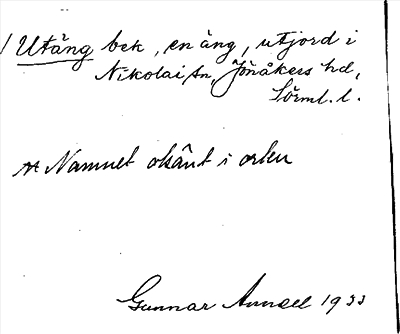 Utäng bek, en äng, utjord i
Nikolai sn, Jönåkers hd,
Sörml. l.
Namnet okänt i orten
Gunnar 1933